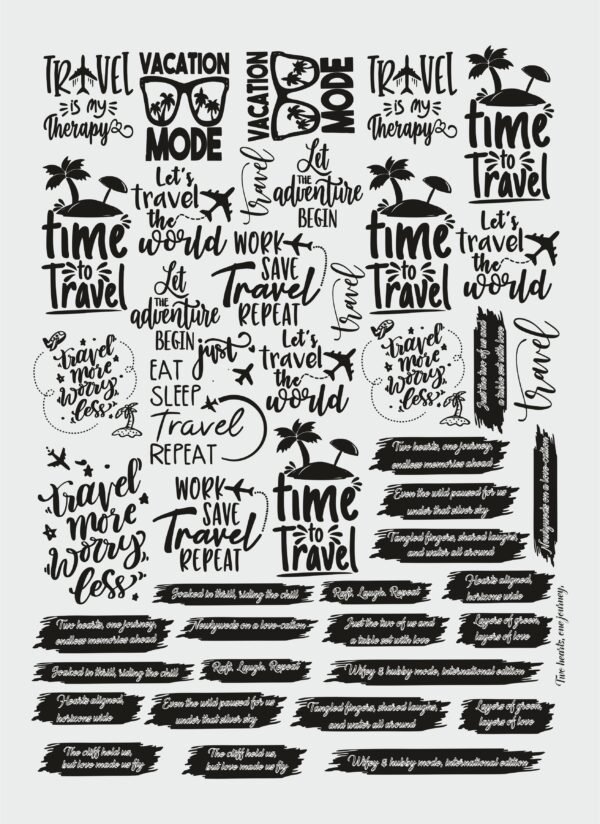 TRAVEL
is my
Therapy
VACATION
MODE
VACATION
MODE
TRAVEL
is my
Therapy
time
to
Travel
time
to
Travel
Let's
travel
the
world
travel
Let
THE
adventure
BEGIN
time
to
Travel
Let's
travel
the
world
WORK
SAVE
Travel
REPEAT
Let
THE
adventure
BEGIN
travel
travel
more
worry
less
just
EAT
SLEEP
Travel
REPEAT
Let's
travel
the
world
travel
more
worry
less
Just the two of us and
a table set with love
travel
travel
more
worry
less
WORK
SAVE
Travel
REPEAT
time
to
Travel
Two hearts, one journey,
endless memories ahead
Even the wild paused for us
under that silver sky
Tangled fingers, shared laughs,
and water all around
Newlyweds on a love-cation
Soaked in thrill, riding the chill
Raft. Laugh. Repeat
Hearts aligned,
horizons wide
Two hearts, one journey,
Two hearts, one journey,
endless memories ahead
Newlyweds on a love-cation
Just the two of us and
a table set with love
Layers of green,
layers of love
Soaked in thrill, riding the chill
Raft. Laugh. Repeat
Wifey & hubby mode, international edition
Hearts aligned,
horizons wide
Even the wild paused for us
under that silver sky
Tangled fingers, shared laughs,
and water all around
Layers of green,
layers of love
The cliff held us,
but love made us fly
The cliff held us,
but love made us fly
Wifey & hubby mode, international edition